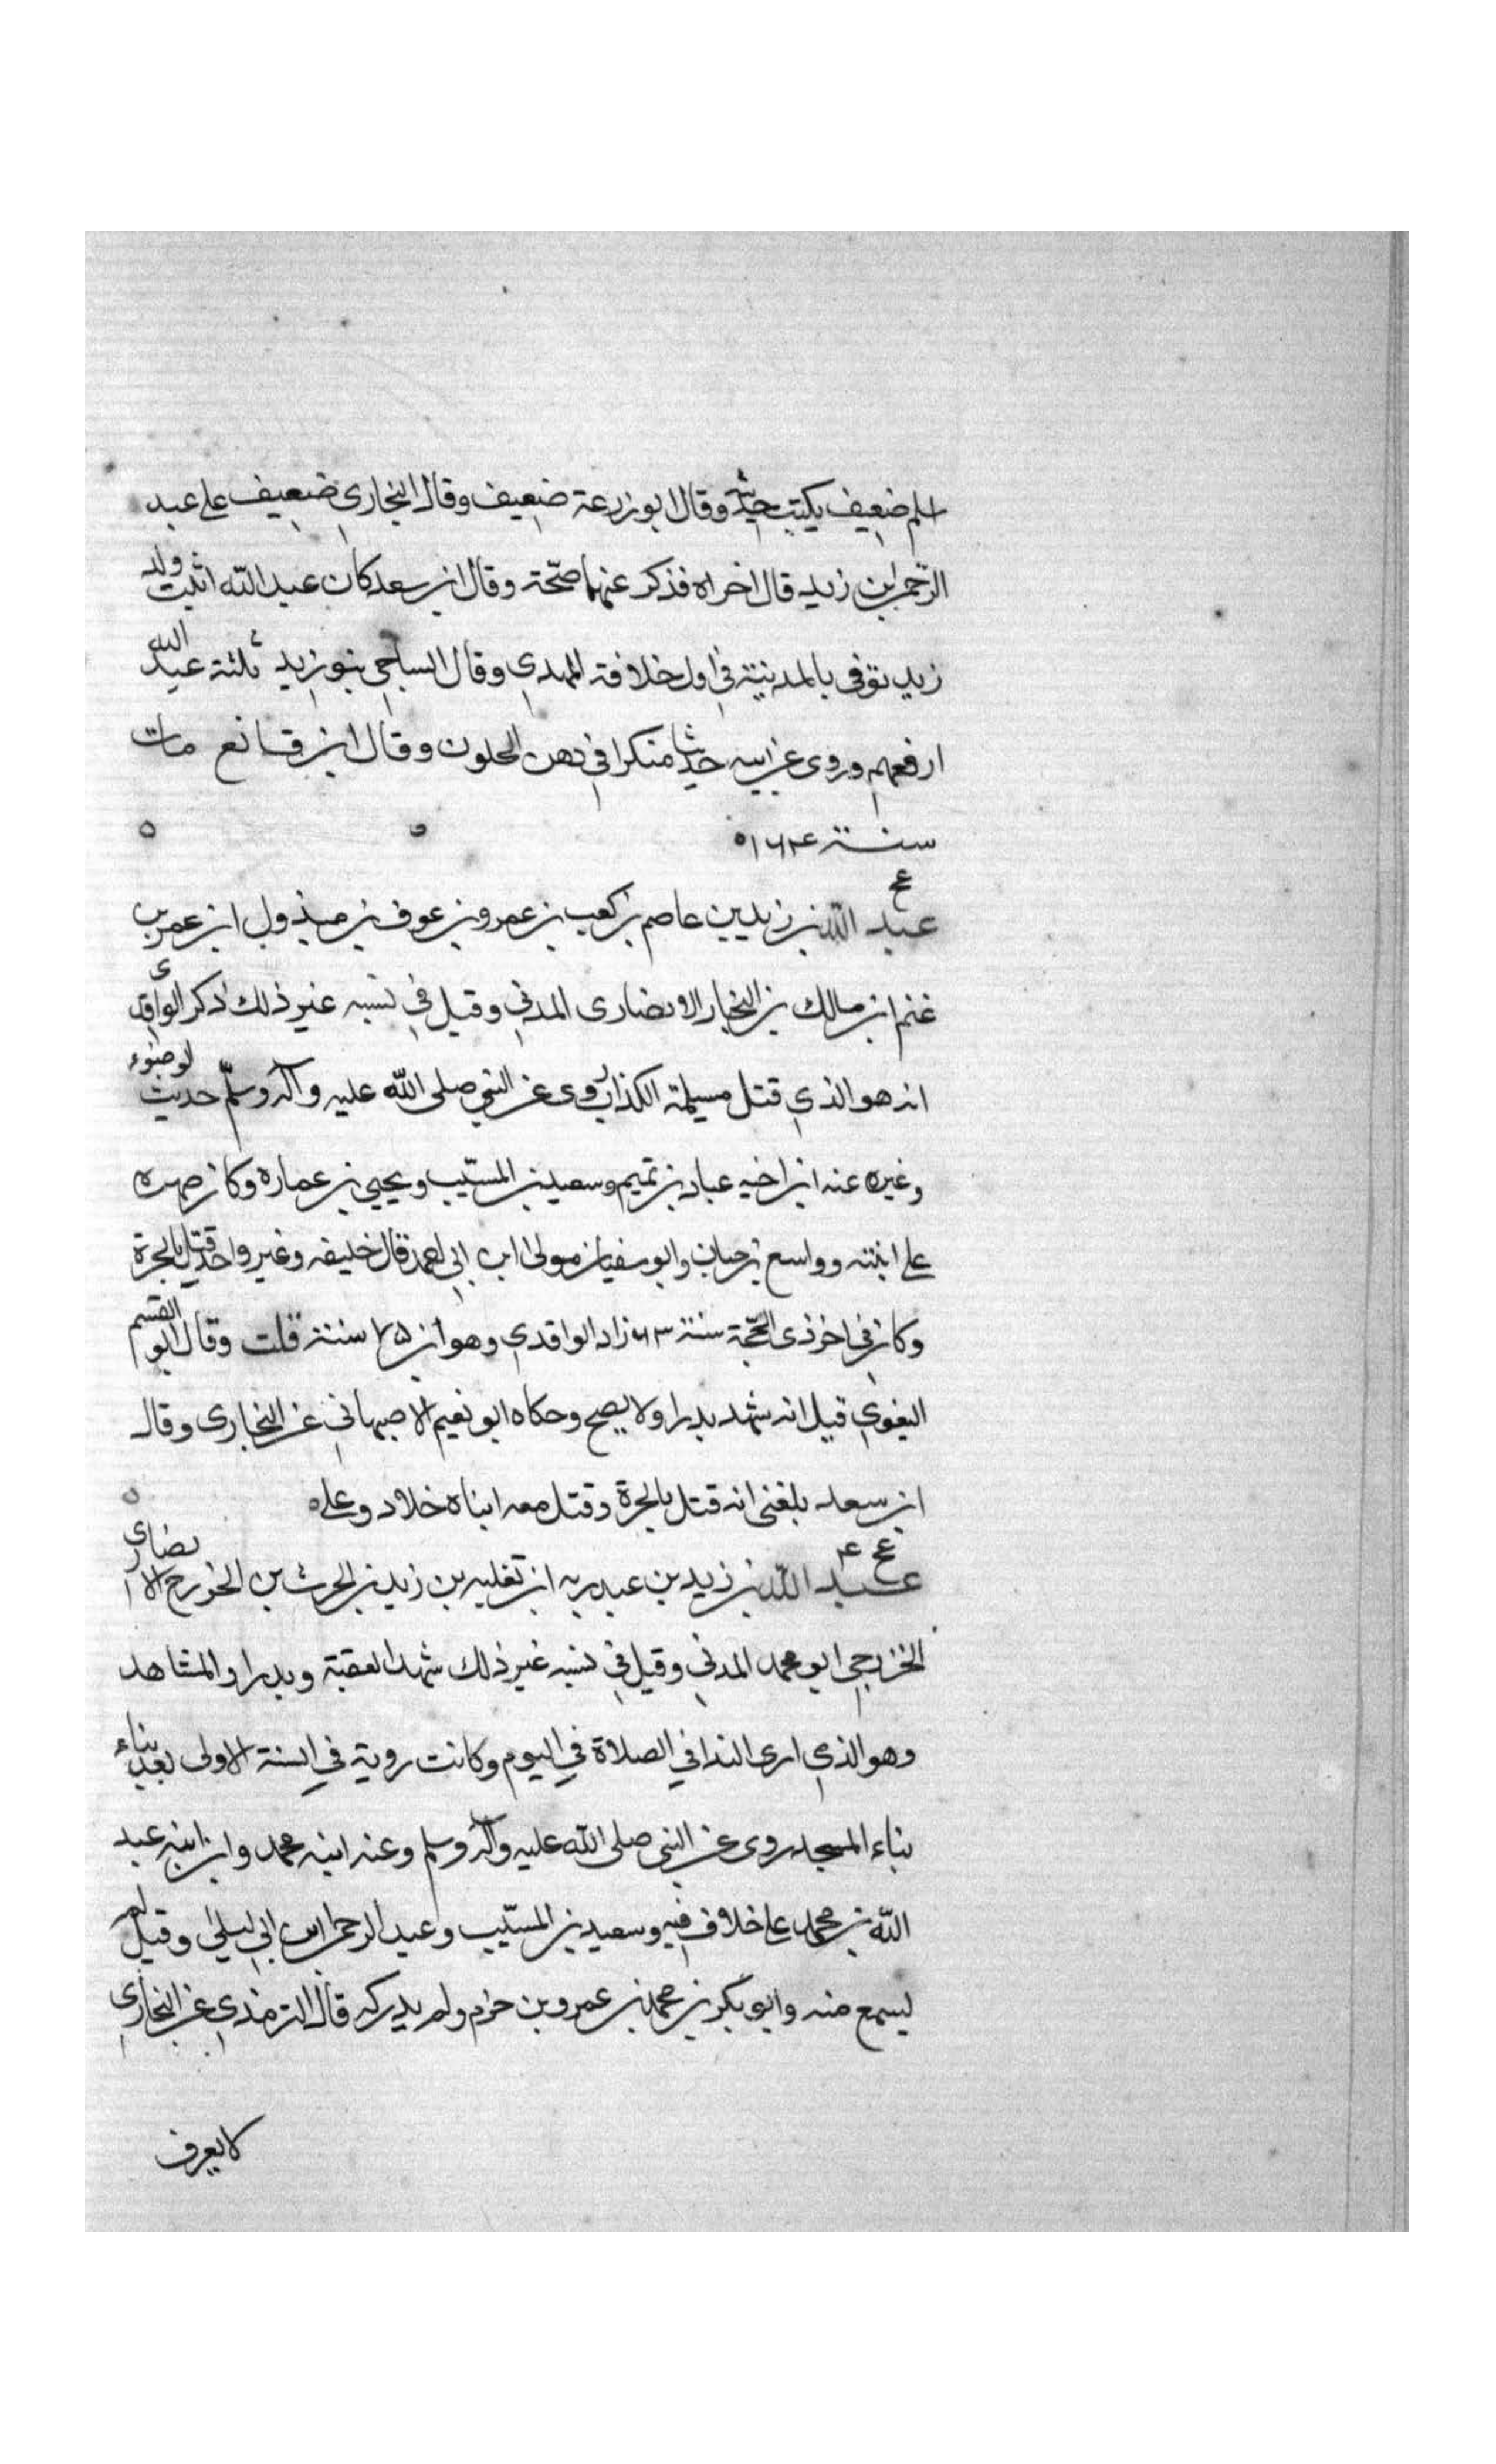 اسلم ضعيف يكتب حديثه وقال ابو زرعة ضعيف وقال البخاري ضعيف على عبد
الرحمن ابن زيد قال اخراه فذكر عنهما صحّة وقال ابن سعد كان عبد الله اثبت ولد
زيد توفى بالمدينة في اول خلافة المهدي وقال الساجي بنو زيد ثلثة عبد الله
ارفعهم وروى عن ابيه حديثا منكرا في دهن الخلون وقال ابن قانع مات
سنة ١٦٤
عبد الله بن زيد بن عاصم بن كعب بن عمرو بن عوف بن مبذول ابن عمر بن
غنم ابن مالك بن النجار الانصارى المدني وقيل في نسبه غير ذلك ذكر الواقدى
انه هو الذي قتل مسيلمة الكذاب روى عن النبي صلى الله عليه وآله وسلّم حديث لوضوء
وغيره عنه ابن اخيه عباد بن تميم وسعيد بن المسيّب ويحيى بن عماره وكان صهره
على ابنته وواسع بن حبان وابو سفيان مولى ابن ابي احمد قال خليفه وغير واحد قتل بالحرة
وكان في اخر ذى الحجّة سنة ٦٣ زاد الواقدي وهو ابن ٧٥ سنة قلت وقال ابو القسم
البغوي قيل انه شهد بدرا ولا يصح وحكاه ابو نعيم الاصبهاني عن البخارى وقال
ابن سعد بلغنى انه قتل بالحرة وقتل معه ابناه خلاد وعلي
عخ ٤
عبد الله بن زيد بن عبد ربه ابن ثعلبه بن زيد بن الحرث بن الخزرج الانصاري
الخزرجي ابو محمد المدني وقيل في نسبه غير ذلك شهد العقبة وبدرا والمشاهد
وهو الذي ارى الندا في الصلاة في اليوم وكانت روية في السنة الاولى بعد بناء
بناء المسجد روى عن النبي صلى الله عليه وآله وسلم وعنه ابنه محمد وابن ابنه عبد
الله بن محمد على خلاف فيه وسعيد بن المسيّب وعبد الرحمن ابن ابي ليلى وقيل لم
يسمع منه وابو بكر بن محمد بن عمرو بن حزم ولم يدركه قال الترمذي عن البخاري
لا يعرف